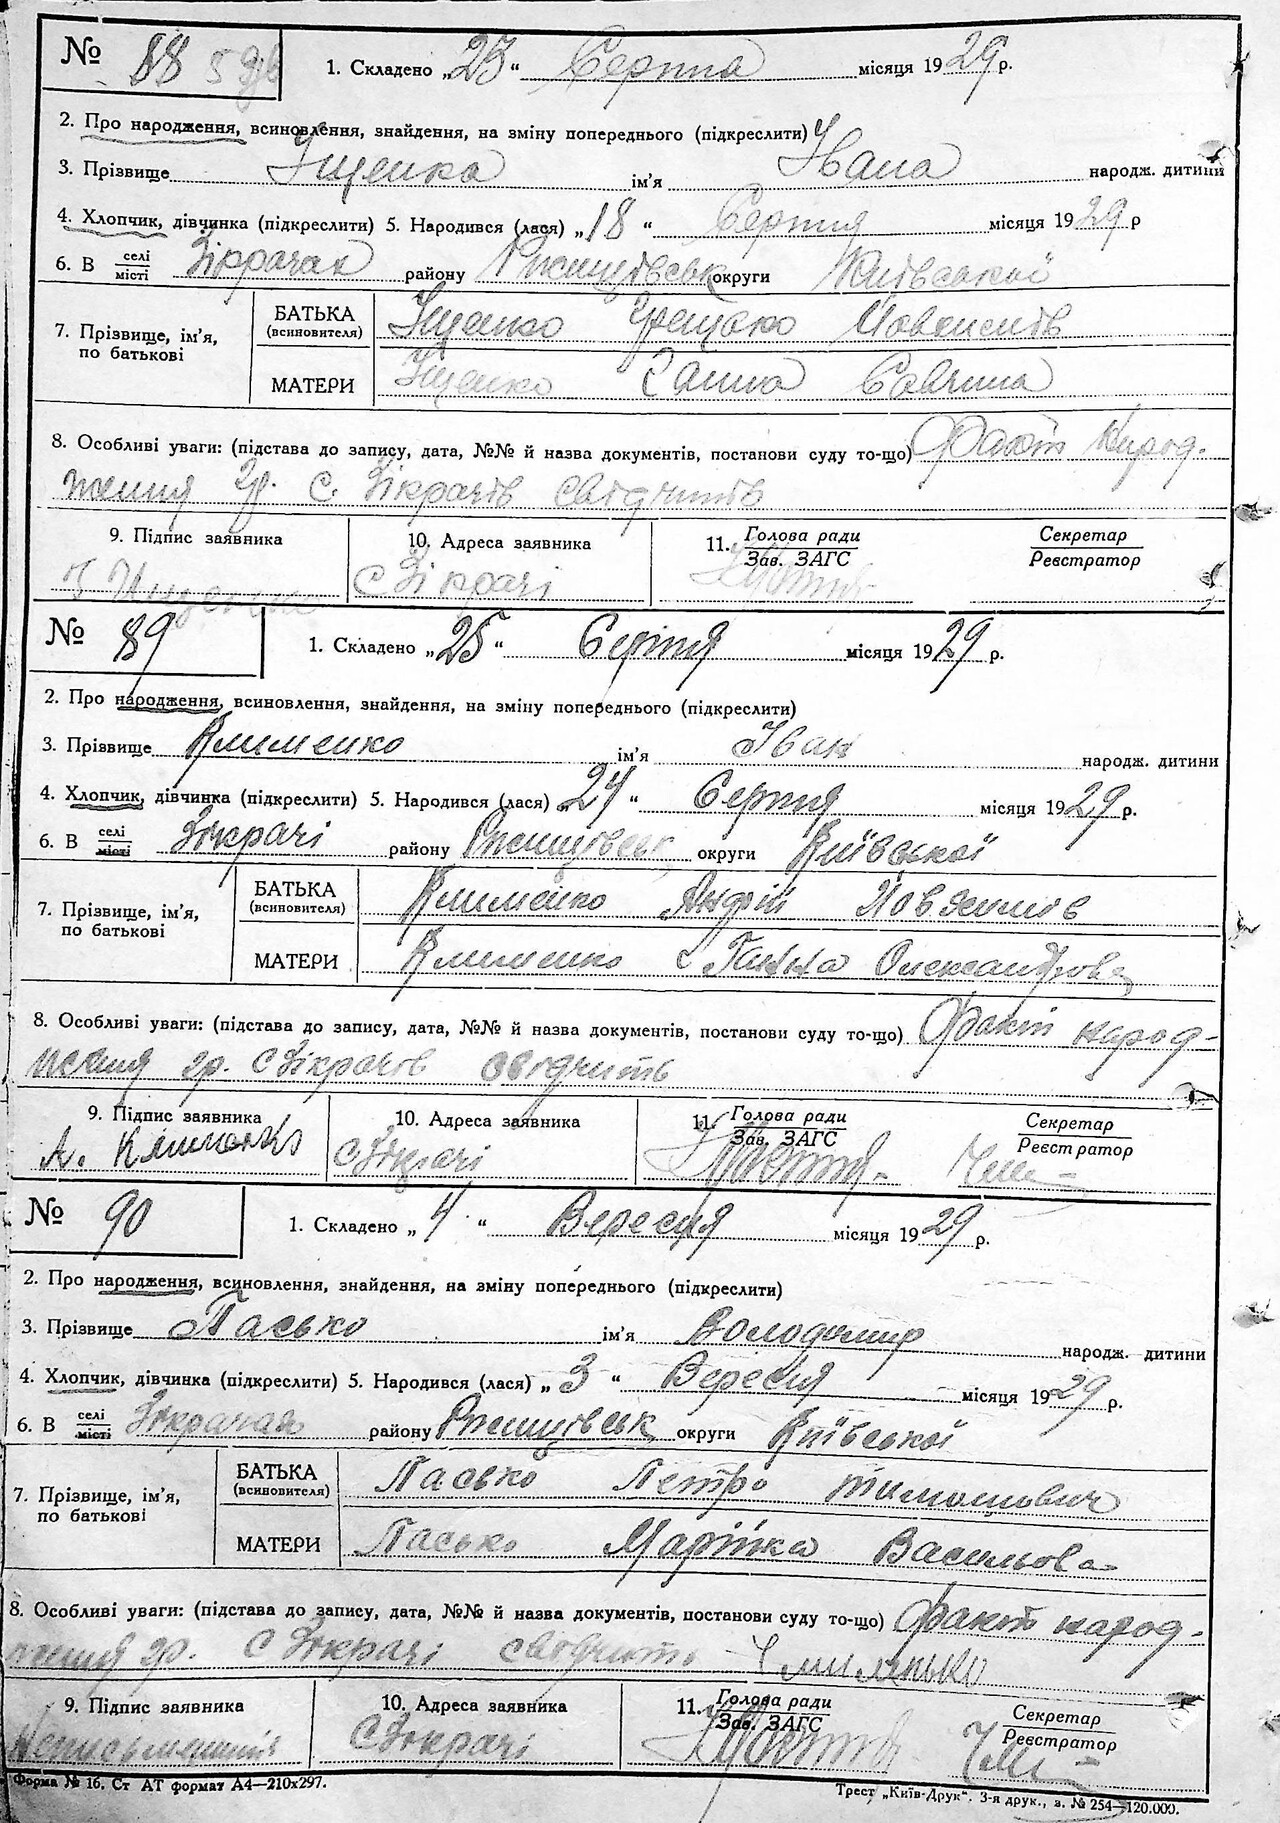 № 88
1. Складено „23“ Серпня місяця 1929 р.
2. Про народження, всиновлення, знайдення, на зміну попереднього (підкреслити)
3. Прізвище Іщенка ім'я Івана народж. дитини
4. Хлопчик, дівчинка (підкреслити) 5. Народився (лася) „18“ Серпня місяця 1929 р
6. В селі місті Зікрачах району Ржищівськ округи Київської
7. Прізвище, ім'я, по батькові
БАТЬКА (всиновителя) Іщенко Грицько
МАТЕРИ Іщенко Ганна Савчина
8. Особливі уваги: (підстава до запису, дата, №№ й назва документів, постанови суду то-що) Факт народ-
ження гр. с. Зікрачів свідчить
9. Підпис заявника 10. Адреса заявника 11. Голова ради Зав. ЗАГС Секретар Реєстратор
Г Іщенко с Зікрачі
№ 89
1. Складено „25“ Серпня місяця 1929 р.
2. Про народження, всиновлення, знайдення, на зміну попереднього (підкреслити)
3. Прізвище Клименко ім'я Іван народж. дитини
4. Хлопчик, дівчинка (підкреслити) 5. Народився (лася) „24“ Серпня місяця 1929 р.
6. В селі місті Зікрачі району Ржищівськ округи Київської
7. Прізвище, ім'я, по батькові
БАТЬКА (всиновителя) Клименко Андрій
МАТЕРИ Клименко Ганна Олександрова
8. Особливі уваги: (підстава до запису, дата, №№ й назва документів, постанови суду то-що) Факт народ-
ження гр. с Зікрачів свідчить
9. Підпис заявника 10. Адреса заявника 11. Голова ради Зав. ЗАГС Секретар Реєстратор
А. Клименко с Зікрачі
№ 90
1. Складено „4“ Вересня місяця 1929 р.
2. Про народження, всиновлення, знайдення, на зміну попереднього (підкреслити)
3. Прізвище Пасько ім'я Володомир народж. дитини
4. Хлопчик, дівчинка (підкреслити) 5. Народився (лася) „3“ Вересня місяця 1929 р.
6. В селі місті Зікрачах району Ржищівськ округи Київської
7. Прізвище, ім'я, по батькові
БАТЬКА (всиновителя) Пасько Петро Тимошович
МАТЕРИ Пасько Марійка Васильова
8. Особливі уваги: (підстава до запису, дата, №№ й назва документів, постанови суду то-що) Факт народ-
ження гр. с Зікрачі свідчить
9. Підпис заявника 10. Адреса заявника 11. Голова ради Зав. ЗАГС Секретар Реєстратор
Неписьменний с Зікрачі
Форма № 16. Ст АТ формат А4—210х297.
Трест „Київ-Друк“. 3-я друк., з. № 254—120.000.